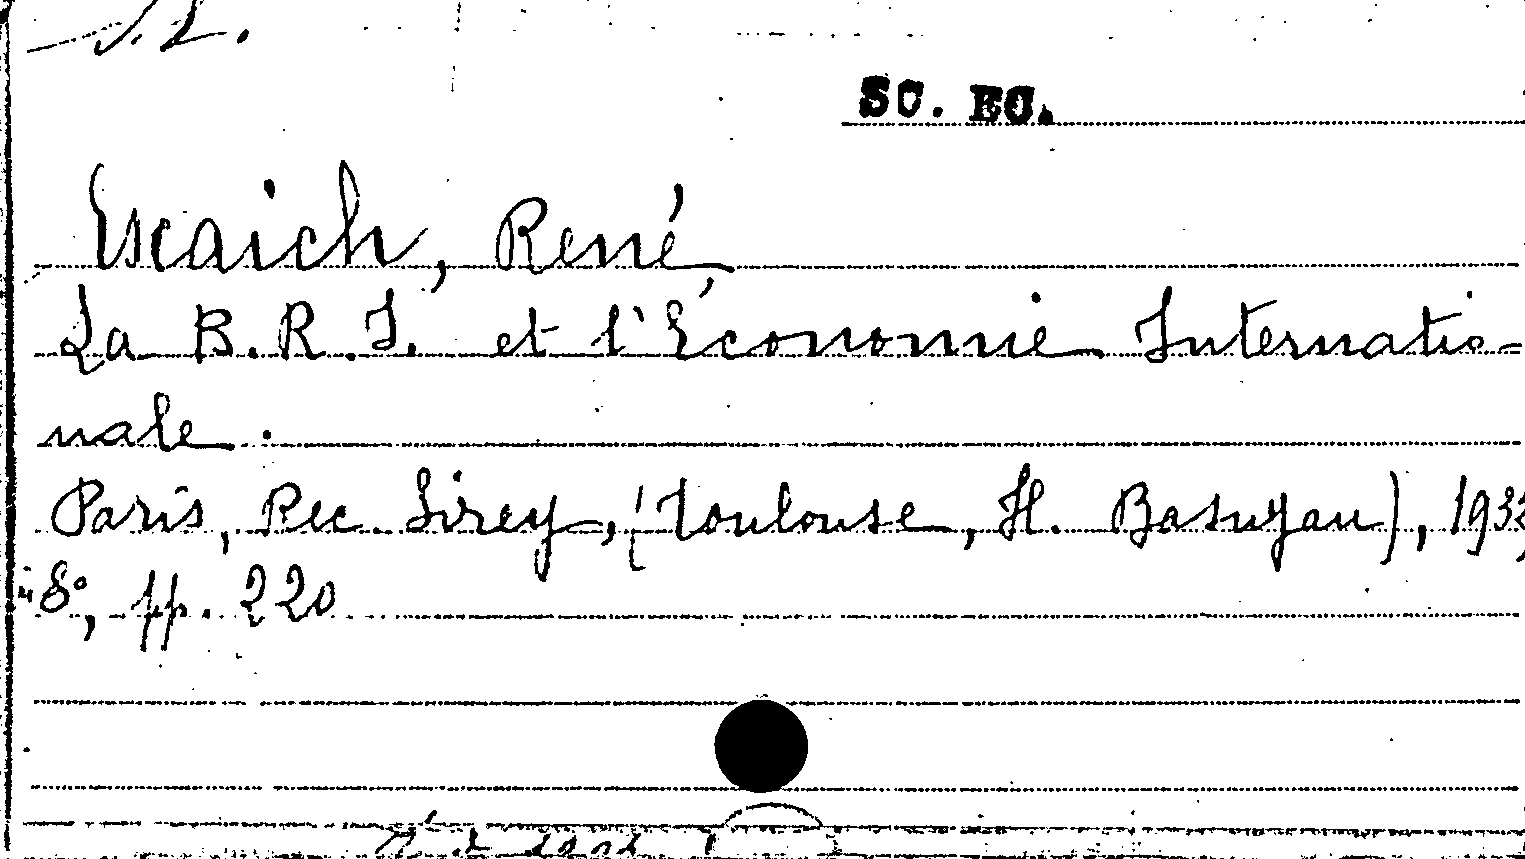 SC. EC.
Escaich, René
La B.R.I. et l'Économie Internatio-
nale.
Paris, Rec. Sirey, (Toulouse, H. Basuyau),
in 8°, pp. 220